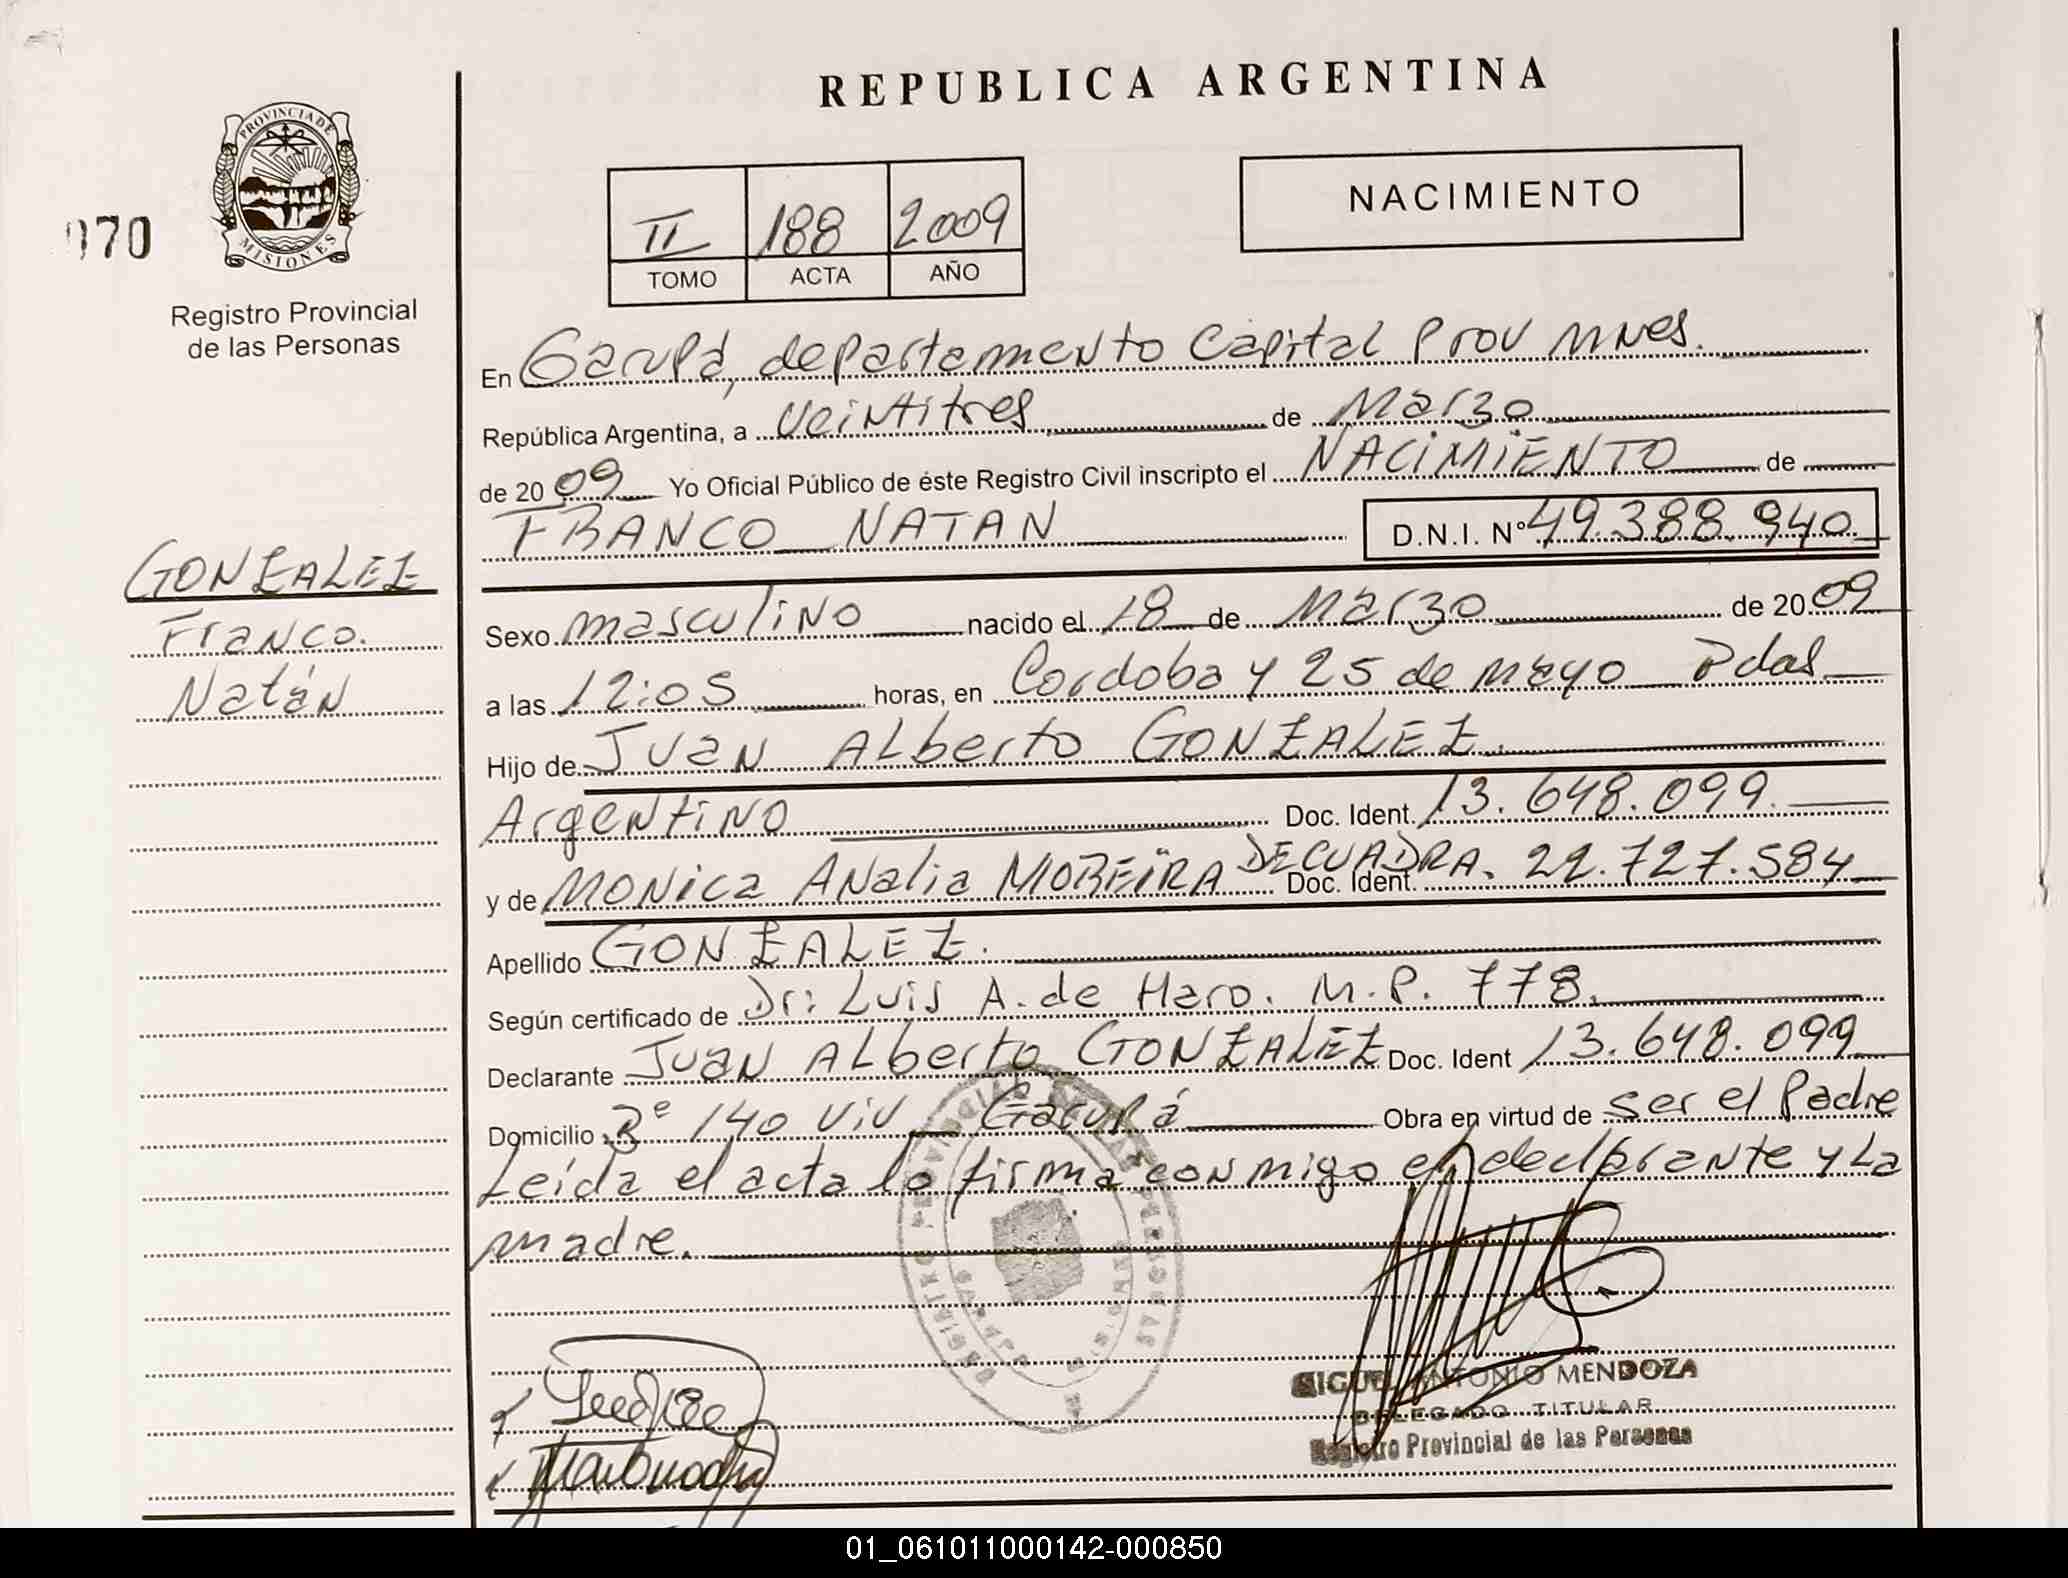 REPUBLICA ARGENTINA
PROVINCIA DE
MISIONES
070
Registro Provincial
de las Personas
II 188 2009
TOMO ACTA AÑO
NACIMIENTO
En Garupá, departamento Capital Prov Mnes.
República Argentina, a veintitres de Marzo
de 2009 Yo Oficial Público de éste Registro Civil inscripto el NACIMIENTO de
FRANCO NATAN D.N.I. Nº 49.388.940
GONZALEZ
Franco.
Natán
Sexo masculino nacido el 18 de Marzo de 2009
a las 12:05 horas, en Cordoba y 25 de mayo Pdas
Hijo de Juan Alberto GONZALEZ.
Argentino Doc. Ident. 13.648.099.
y de MONica ANalia MOREIRA DECUADRA. Doc. Ident. 22.727.584
Apellido GONZALEZ.
Según certificado de Dr: Luis A. de Haro. M.P. 778.
Declarante Juan Alberto GONZALEZ Doc. Ident 13.648.099
Domicilio Bº 140 viv Garupá Obra en virtud de ser el Padre
Leída el acta lo firma conmigo el declarante y La
madre.
REGISTRO PROVINCIAL DE LAS PERSONAS
MIGUEL ANTONIO MENDOZA
DELEGADO TITULAR
Registro Provincial de las Personas
01_061011000142-000850